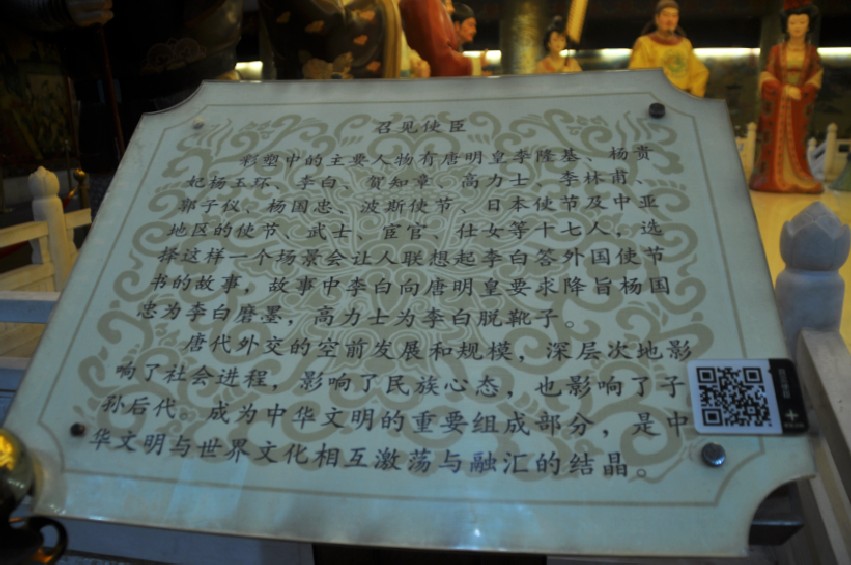 召见使臣
彩塑中的主要人物有唐明皇李隆基、杨贵
妃杨玉环、李白、贺知章、高力士、李林甫、
郭子仪、杨国忠、波斯使节、日本使节及中亚
地区的使节、武士、宦官、仕女等十七人，选
择这样一个场景会让人联想起李白答外国使节
书的故事，故事中李白向唐明皇要求降旨杨国
忠为李白磨墨，高力士为李白脱靴子。
唐代外交的空前发展和规模，深层次地影
响了社会进程，影响了民族心态，也影响了子
孙后代。成为中华文明的重要组成部分，是中
华文明与世界文化相互激荡与融汇的结晶。